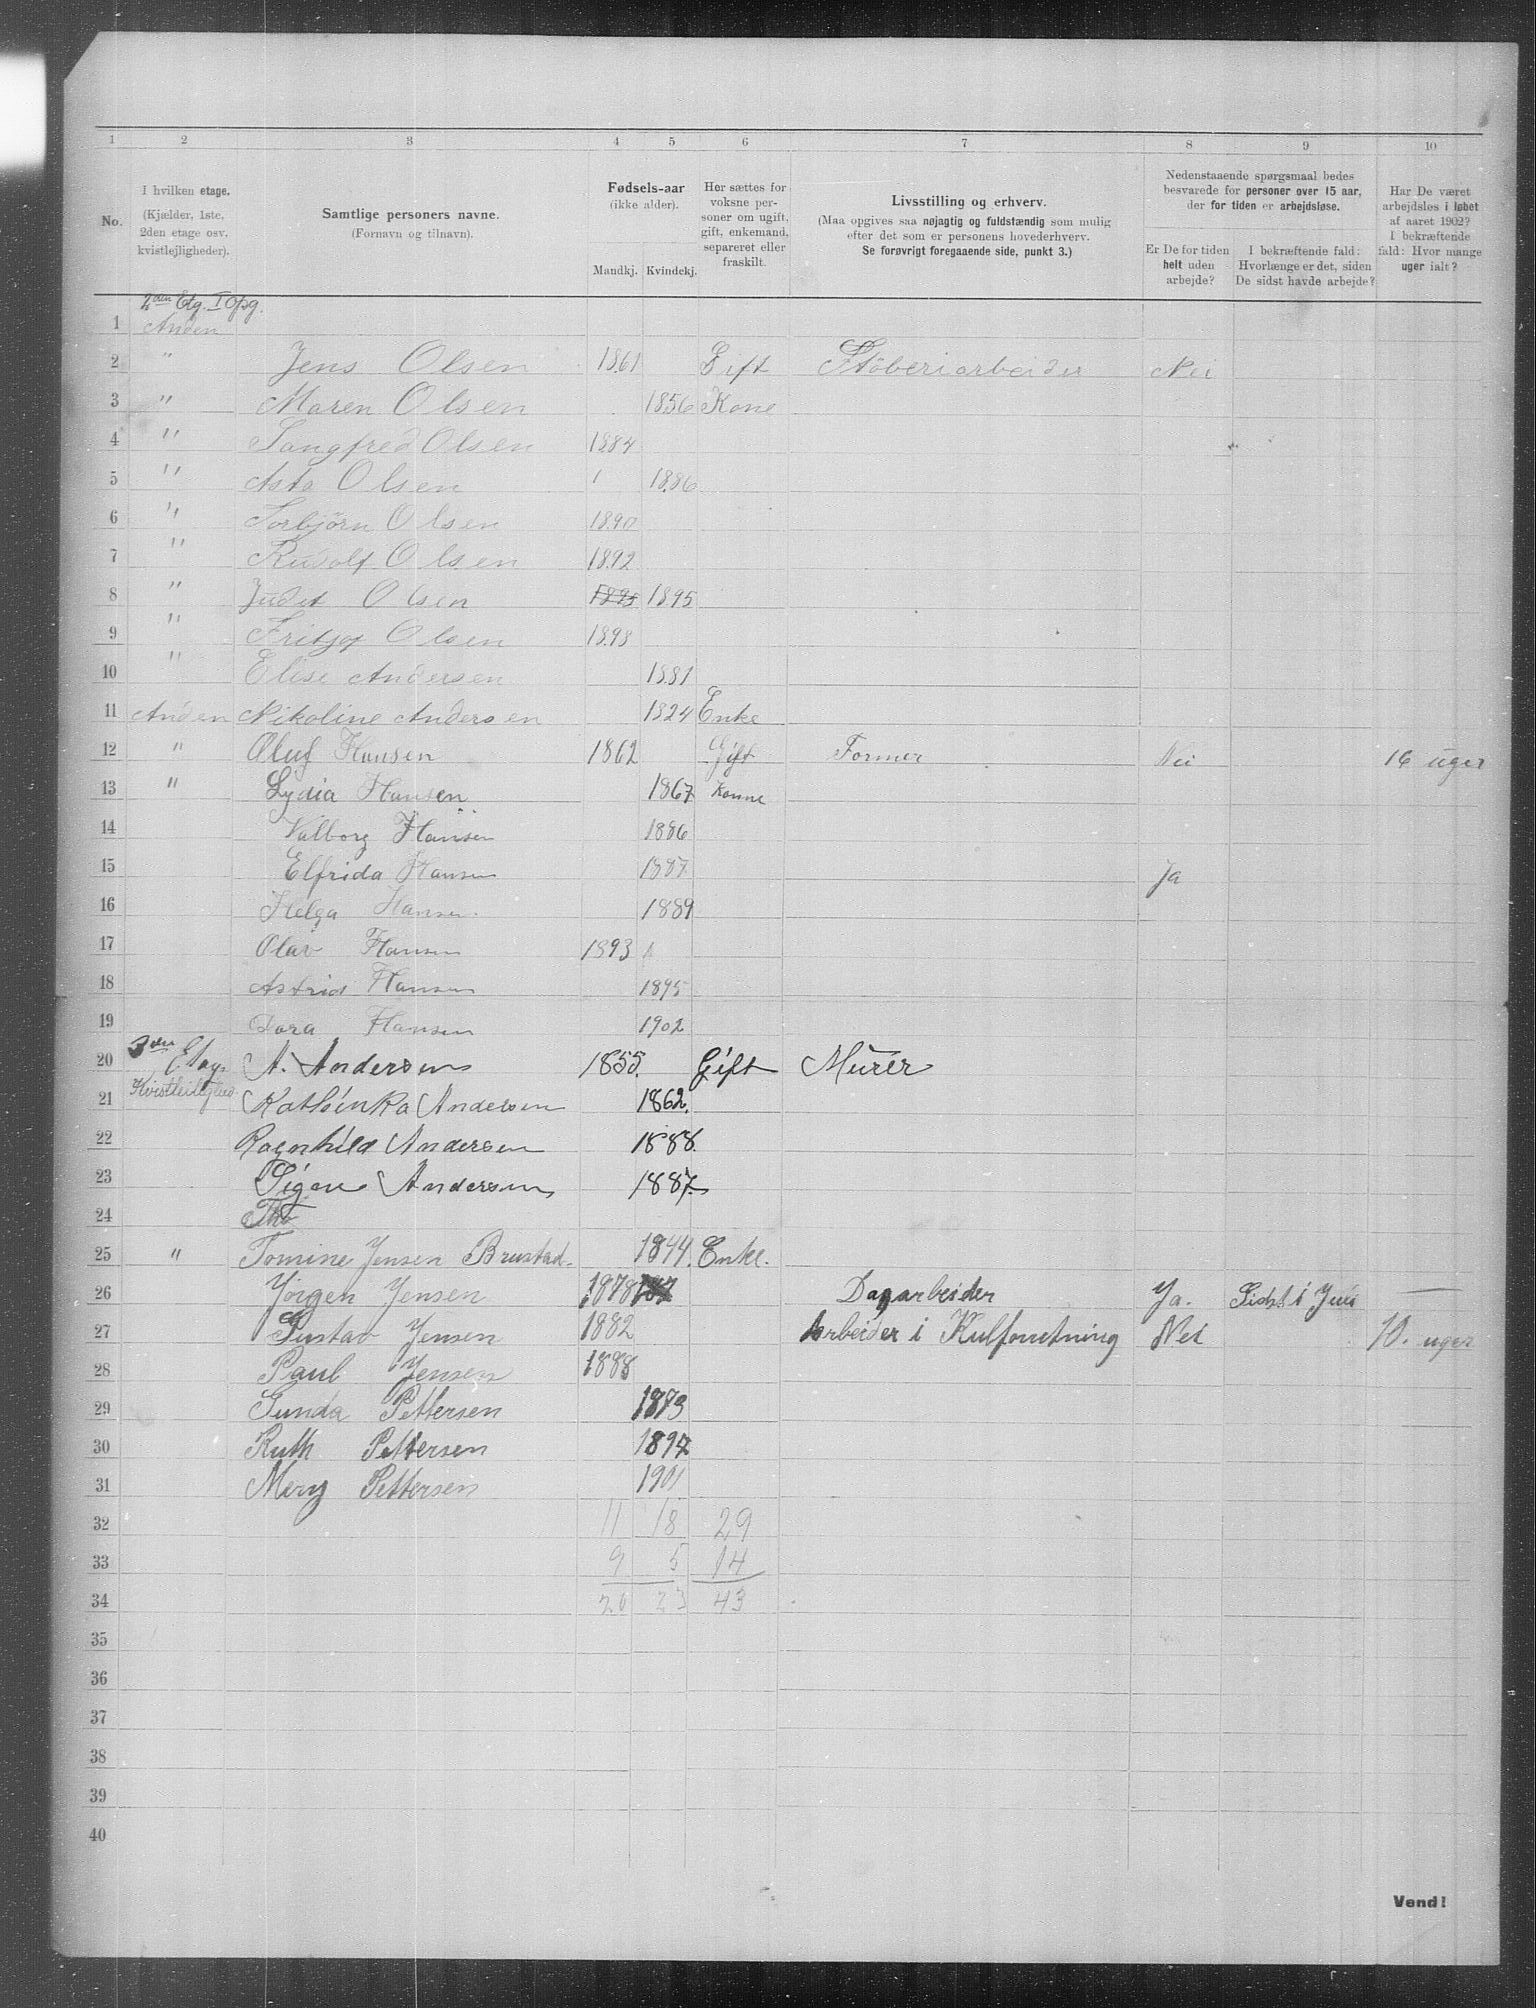 1 2 3 4 5 6 7 8 9 10
No.
I hvilken etage.
(Kjælder, 1ste,
2den etage osv.
kvistlejligheder).
Samtlige personers navne.
(Fornavn og tilnavn).
Fødsels-aar
(ikke alder).
Mandkj. Kvindekj.
Her sættes for
voksne per-
soner om ugift,
gift, enkemand,
separeret eller
fraskilt.
Livsstilling og erhverv.
(Maa opgives saa nøjagtig og fuldstændig som mulig
efter det som er personens hovederhverv.
Se forøvrigt foregaaende side, punkt 3.)
Nedenstaaende spørgsmaal bedes
besvarede for personer over 15 aar,
der for tiden er arbejdsløse.
Er De for tiden
helt uden
arbejde?
I bekræftende fald:
Hvorlænge er det, siden
De sidst havde arbejde?
Har De været
arbejdsløs i løbet
af aaret 1902?
I bekræftende
fald: Hvor mange
uger ialt?
2den Etg. I Opg.
1 Anden
2 " Jens Olsen 1861 Gift Støberiarbeider Nei
3 " Maren Olsen 1856 Kone
4 " Sangfred Olsen 1884
5 " Asta Olsen 1 1886
6 " Torbjørn Olsen 1890
7 " Rudolf Olsen 1892
8 " Judit Olsen 1895 1895
9 " Fritjof Olsen 1898
10 " Elise Andersen 1881
11 Anden Nikoline Andersen 1824 Enke
12 " Oluf Hansen 1862 Gift Former Nei 16 uger
13 " Lydia Hansen 1867 Konne
14 Valborg Hansen 1886
15 Elfrida Hansen 1887 Ja
16 Helga Hansen 1889
17 Olav Hansen 1893
18 Astrid Hansen 1895
19 Dora Hansen 1902
3die Etage
20 A. Andersen 1855. Gift Murer
21 Kathinka Andersen 1862.
22 Ragnhild Andersen 1888.
23 Signe Andersen 1887.
24 Tho
25 " Tomine Jensen Brustad. 1844. Enke.
26 Jørgen Jensen 1878 Dagarbeider Ja. Sidst i Juli —
27 Gustav Jensen 1882 Arbeider i Kulforretning Nei 10. uger
28 Paul Jensen 1888
29 Gunda Pettersen 1873
30 Ruth Pettersen 1897
31 Mery Pettersen 1901
32 11 18 29
33 9 5 14
34 20 23 43
35
36
37
38
39
40
Vend!